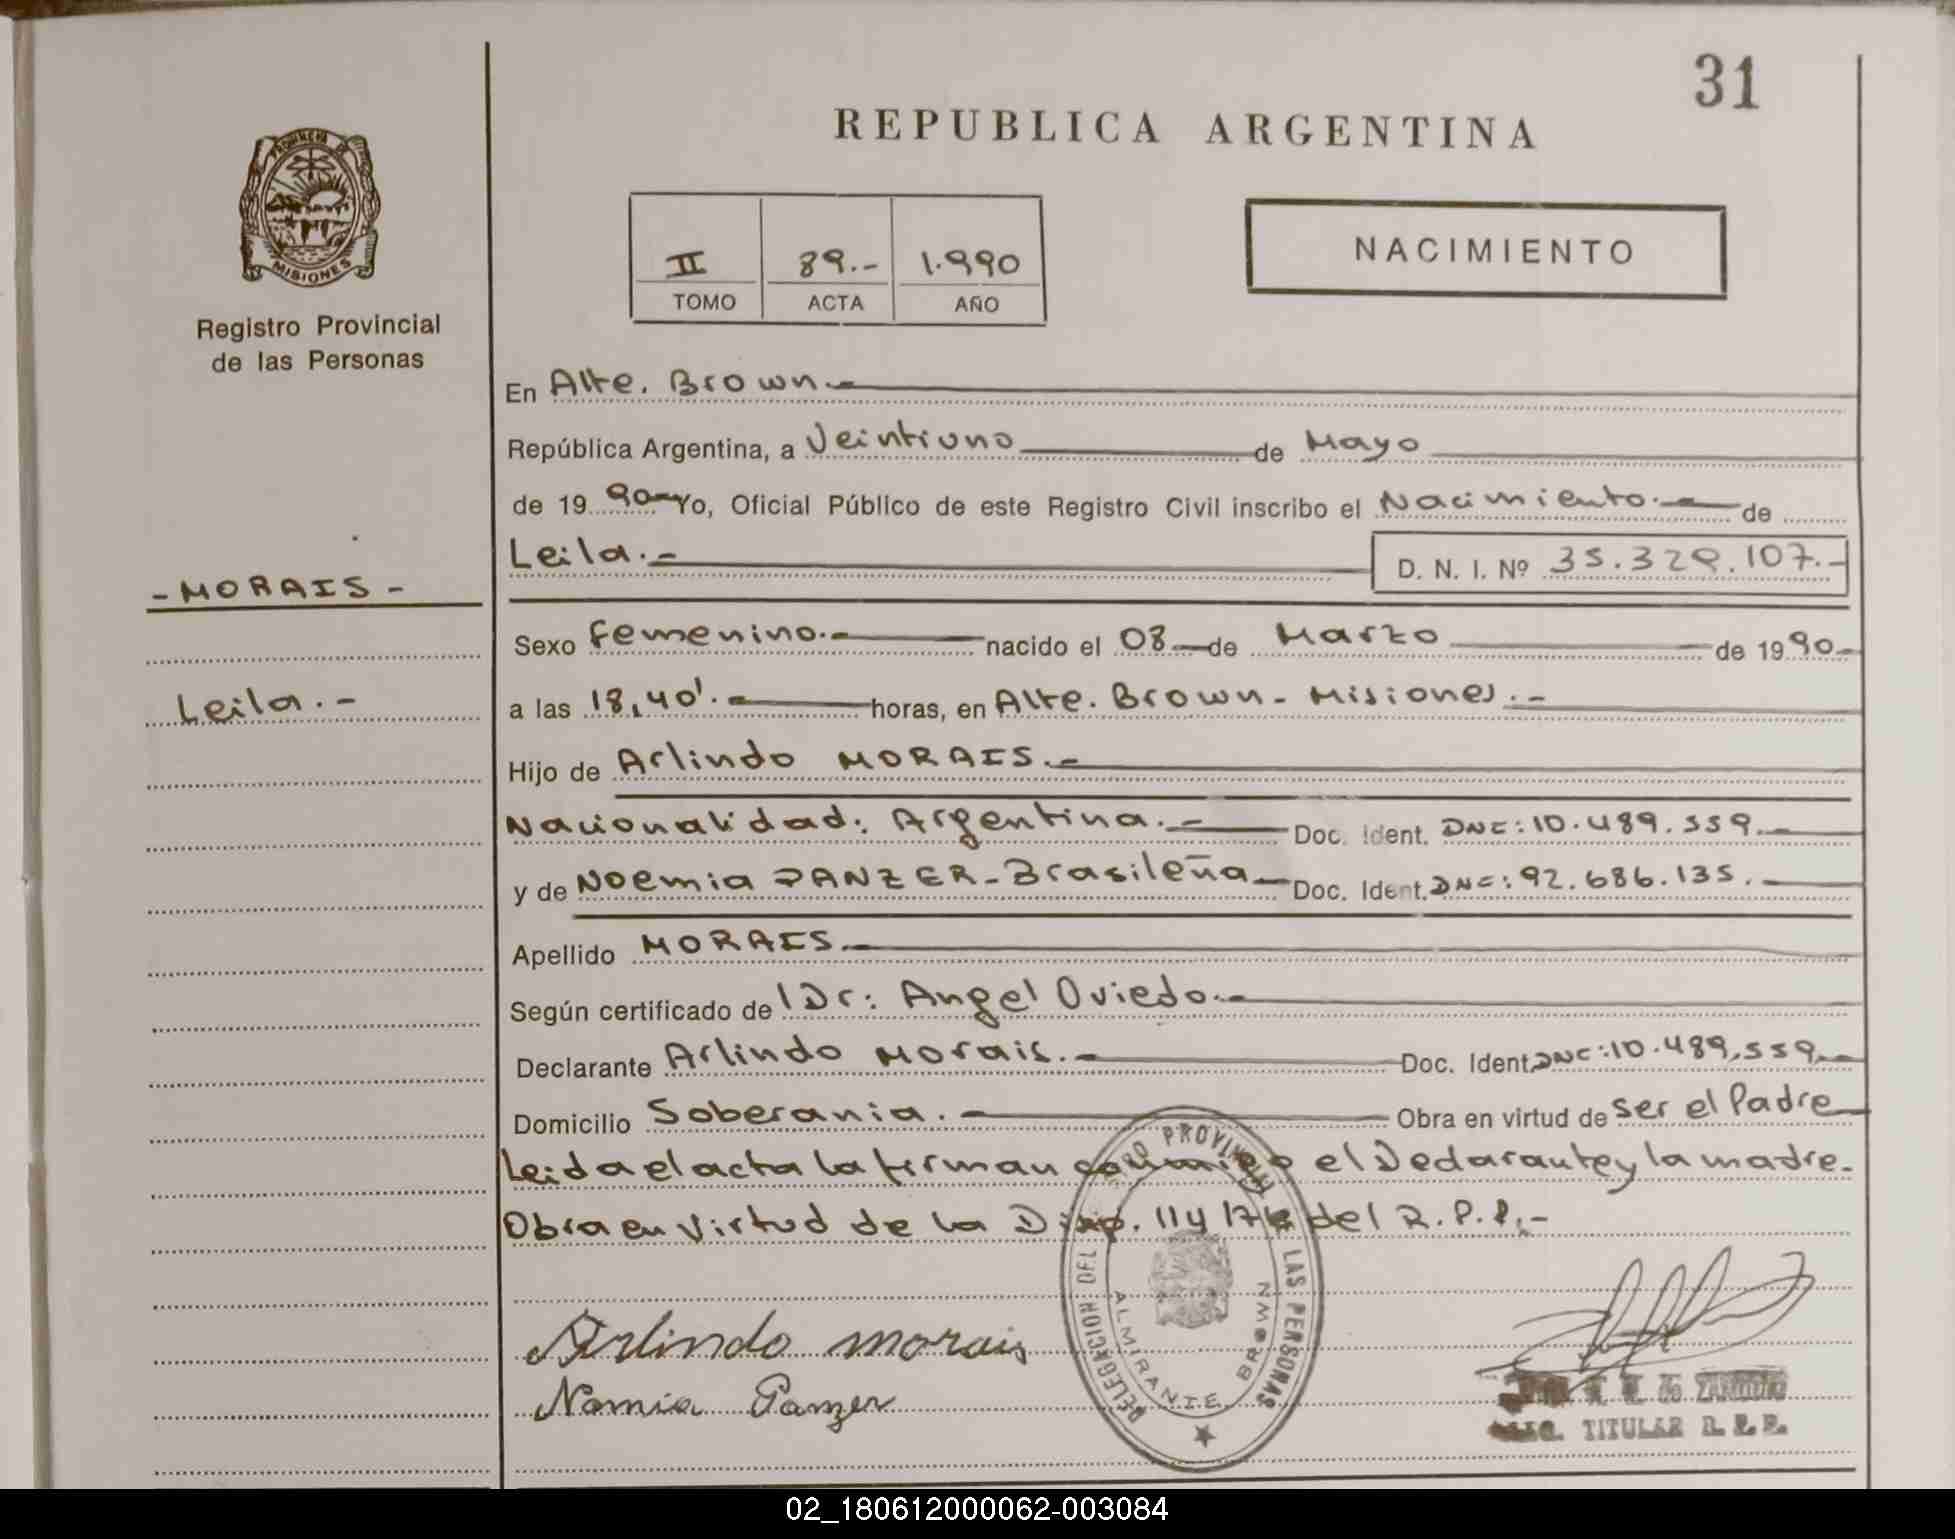 31
REPUBLICA ARGENTINA
PROVINCIA DE
MISIONES
Registro Provincial
de las Personas
II 89.- 1.990
TOMO ACTA AÑO
NACIMIENTO
En Alte. Brown.-
República Argentina, a Veintiuno de Mayo
de 19 90 Yo, Oficial Público de este Registro Civil inscribo el Nacimiento.- de
Leila.- D. N. I. Nº 35.329.107.-
- MORAIS -
Sexo Femenino.- nacido el 08 de Marzo de 19 90-
Leila.-
a las 18,40'.- horas, en Alte. Brown - Misiones.-
Hijo de Arlindo MORAIS.-
Nacionalidad: Argentina.- Doc. Ident. DNI: 10.489.559.-
y de Noemia PANZER - Brasileña - Doc. Ident. DNI: 92.686.135.-
Apellido MORAIS.-
Según certificado de Dr: Angel Oviedo.-
Declarante Arlindo Morais.- Doc. Ident. DNI: 10.489,559.-
Domicilio Soberania.- Obra en virtud de ser el Padre
Leida el acta la firman conmigo el Declarante y la madre.
Obra en Virtud de la Disp. 11 y del R.P.P.-
DELEGACION DEL REGISTRO PROVINCIAL DE LAS PERSONAS
ALMIRANTE BROWN
Arlindo morais
Nomia Panzer
TITULAR R. P. P.
02_180612000062-003084